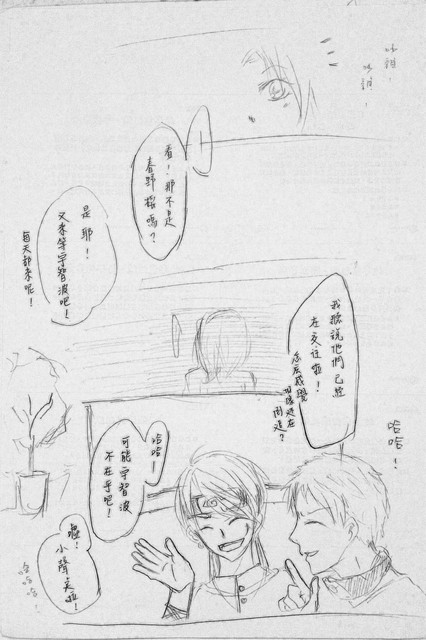 吵雜!
吵雜!
看!那不是
春野櫻嗎?
是耶!
又來等宇智波吧!
每天都來呢!
我聽說他們已經
在交往啦!
怎麼感覺
還在
周遊?
哈哈!
哈哈-
可能宇智波
不在乎吧!
噓!
小聲點啦!
哈哈哈!